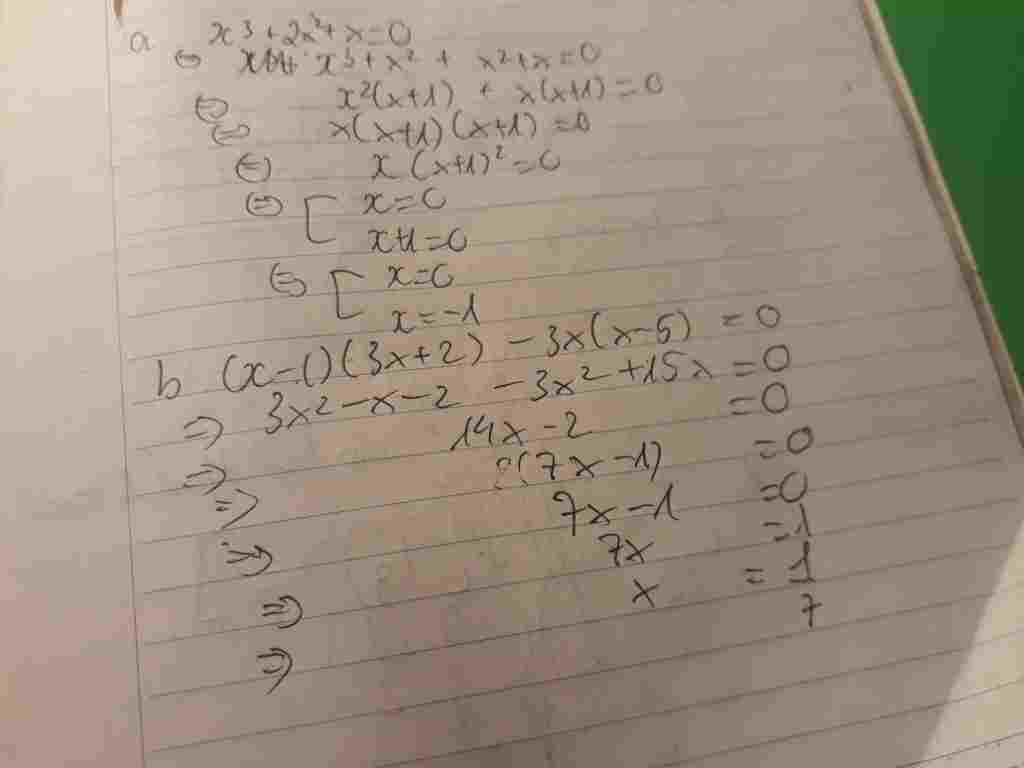 a x³ + 2x² + x = 0
⇔ x³ + x² + x² + x = 0
⇔ x²(x+1) + x(x+1) = 0
⇔ x(x+1)(x+1) = 0
⇔ x(x+1)² = 0
⇔ [ x = 0
x+1 = 0
⇔ [ x = 0
x = -1
b (x-1)(3x+2) - 3x(x-5) = 0
=> 3x² - x - 2 - 3x² + 15x = 0
=> 14x - 2 = 0
=> 2(7x - 1) = 0
=> 7x - 1 = 0
=> 7x = 1
=> x = 1
7